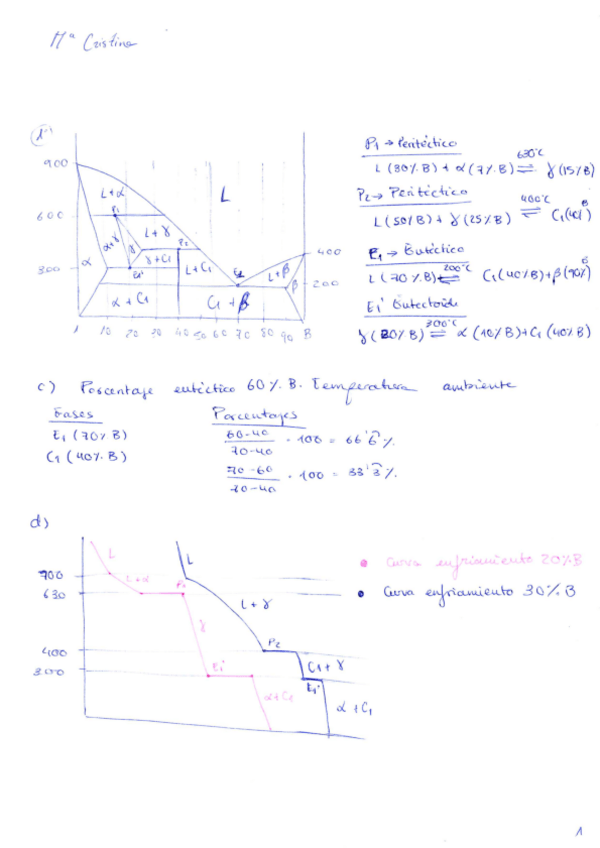 Mª Cristina
1)
900
600
300
L+α
P1
L
α+γ
L+γ
γ
P2
γ+C1
L+C1
α
E1'
E1
L+β
β
400
200
α+C1
C1+β
A 10 20 30 40 50 60 70 80 90 B
P1 → Peritéctico
L (30% B) + α (7% B) ⇌ 630°C γ (15% B)
P2 → Peritéctico
L (50% B) + γ (25% B) ⇌ 400°C C1 (40% B)
E1 → Eutéctico
L (70% B) ⇌ 200°C C1 (40% B) + β (90% B)
E1' Eutectoide
γ (20% B) ⇌ 300°C α (10% B) + C1 (40% B)
c) Porcentaje eutéctico 60% B. Temperatura ambiente
Fases
Porcentajes
E1 (70% B)
C1 (40% B)
60-40 / 70-40 · 100 = 66'6%
70-60 / 70-40 · 100 = 33'3%
d)
700
630
400
300
L
L+α
P1
γ
E1'
α+C1
L
L+γ
P2
C1+γ
E1'
α+C1
• Curva enfriamiento 20% B
• Curva enfriamiento 30% B
1